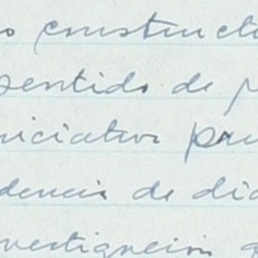 o construct
sentido de p
niciativa par
dencia de dic
nvestigación q